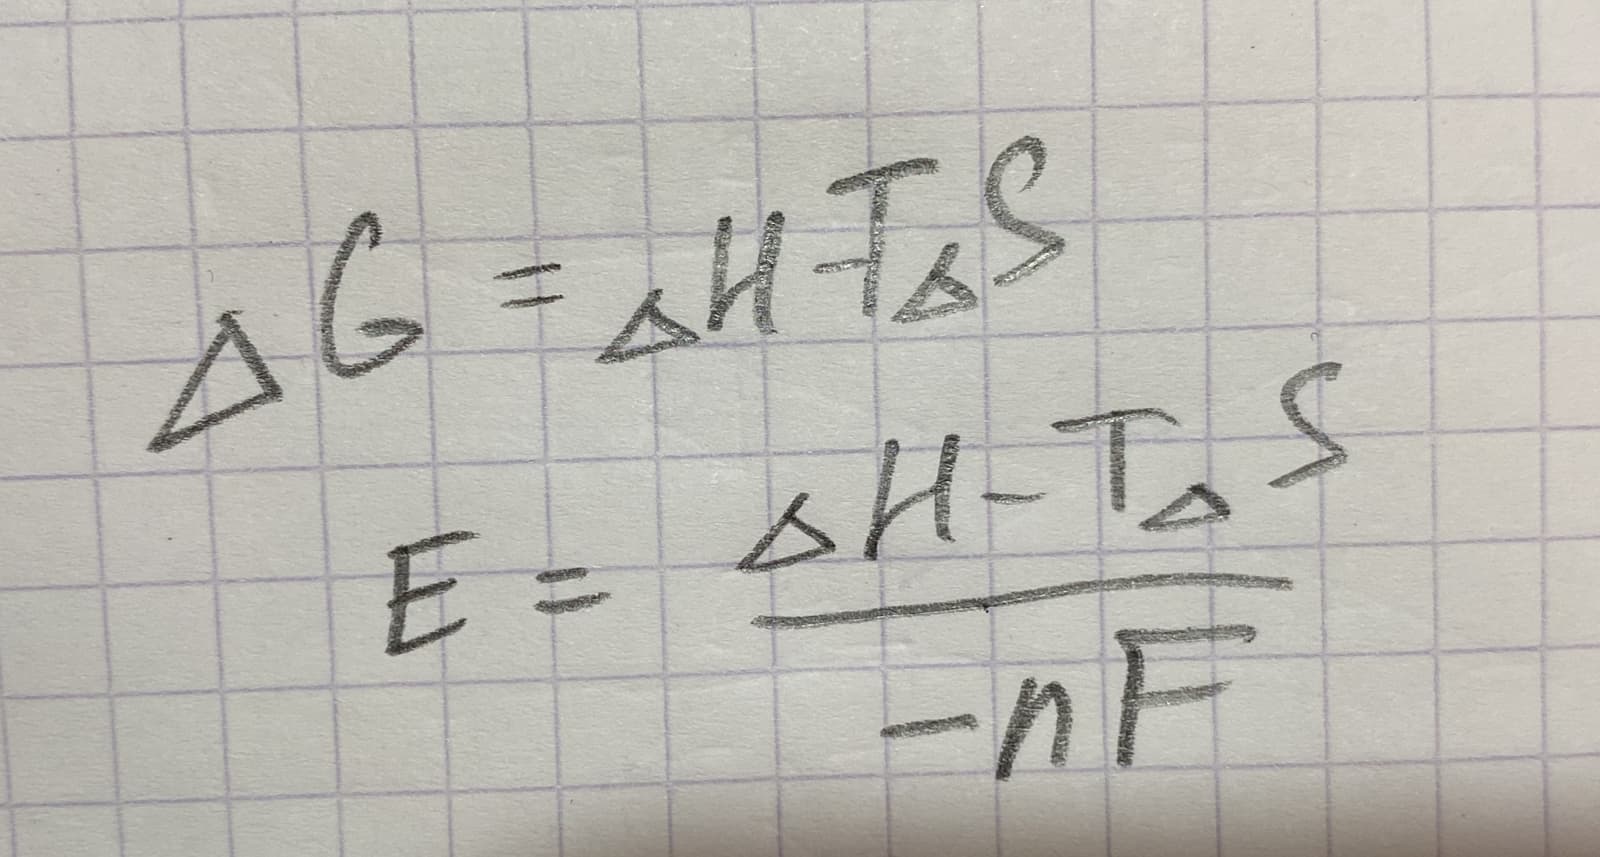 ΔG = ΔH - TΔS
E = (ΔH - TΔS) / (-nF)